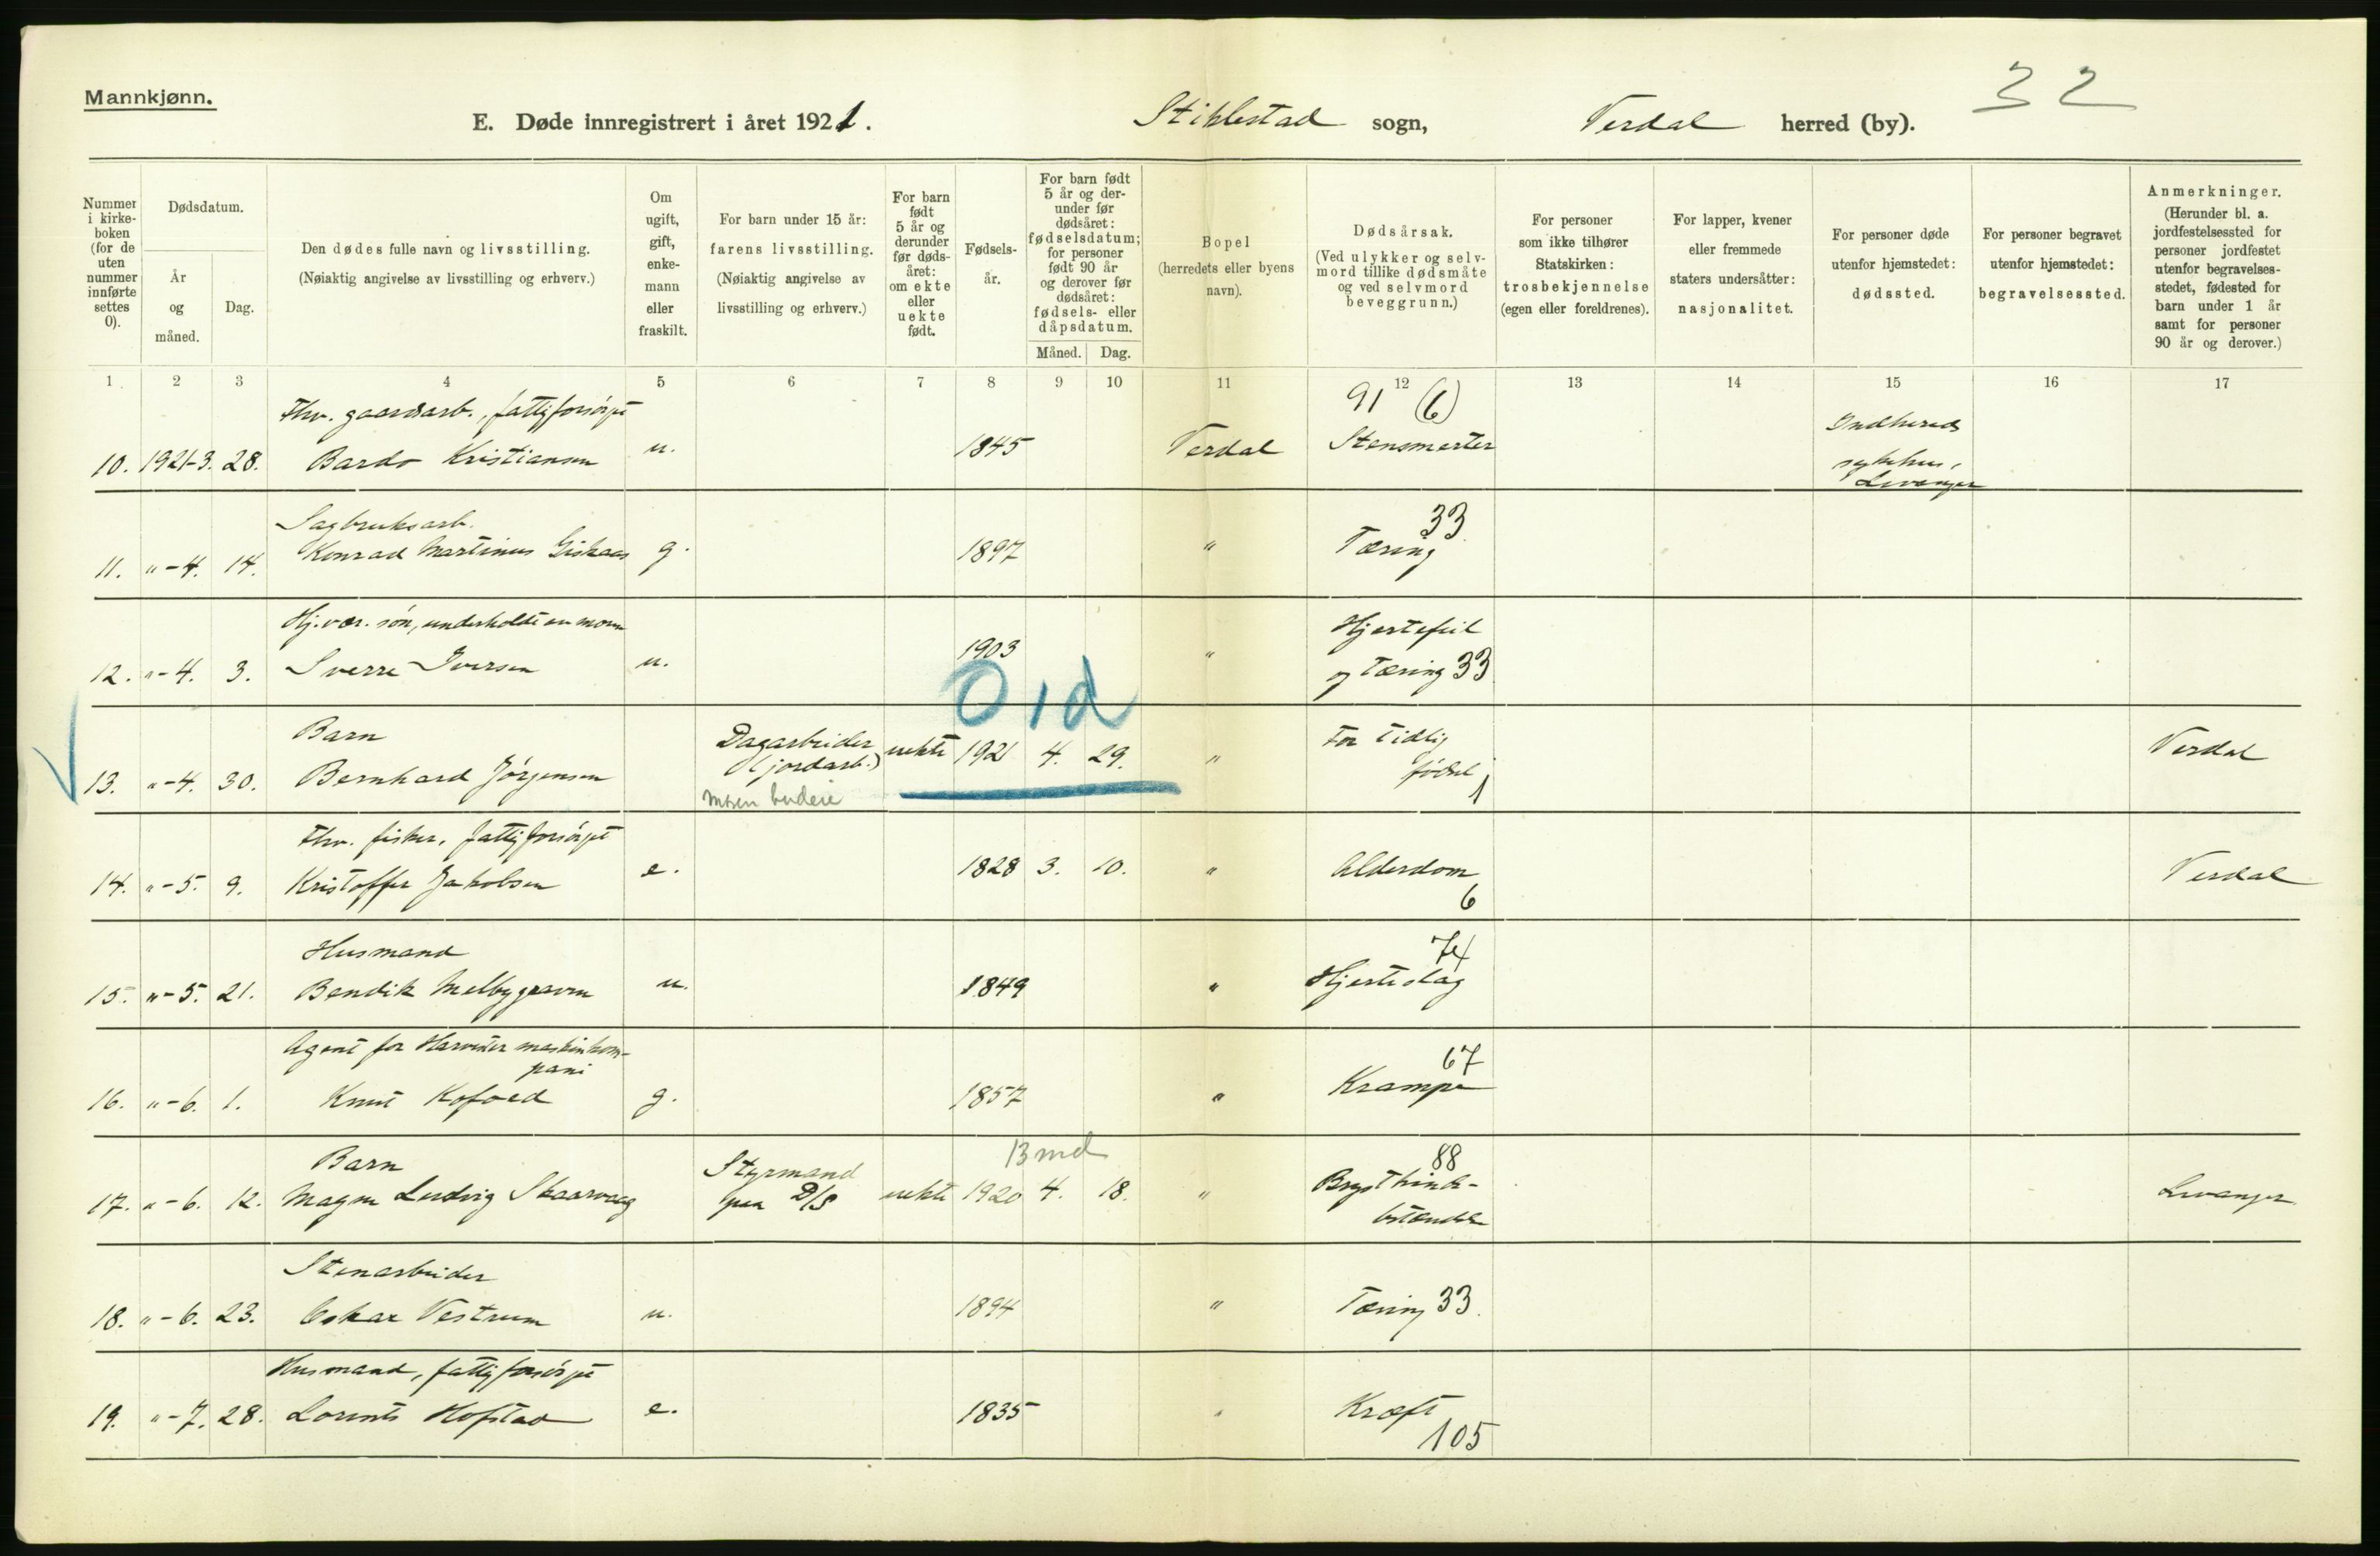 Mannkjønn.
E. Døde innregistrert i året 1921.
Stiklestad sogn,
Verdal herred (by).
32
Nummer i kirkeboken (for de uten nummer innførte settes 0).
Dødsdatum.
År og måned.
Dag.
Den dødes fulle navn og livsstilling.
(Nøiaktig angivelse av livsstilling og erhverv.)
Om ugift, gift, enkemann eller fraskilt.
For barn under 15 år:
farens livsstilling.
(Nøiaktig angivelse av livsstilling og erhverv.)
For barn født 5 år og derunder før dødsåret: om ekte eller uekte født.
Fødselsår.
For barn født 5 år og derunder før dødsåret: fødselsdatum; for personer født 90 år og derover før dødsåret: fødsels- eller dåpsdatum.
Måned.
Dag.
Bopel
(herredets eller byens navn).
Dødsårsak.
(Ved ulykker og selvmord tillike dødsmåte og ved selvmord beveggrunn.)
For personer som ikke tilhører Statskirken:
trosbekjennelse
(egen eller foreldrenes).
For lapper, kvener eller fremmede staters undersåtter:
nasjonalitet.
For personer døde utenfor hjemstedet:
dødssted.
For personer begravet utenfor hjemstedet:
begravelsessted.
Anmerkninger.
(Herunder bl. a. jordfestelsessted for personer jordfestet utenfor begravelsesstedet, fødested for barn under 1 år samt for personer 90 år og derover.)
1 2 3 4 5 6 7 8 9 10 11 12 13 14 15 16 17
Fhv. gaardsarb., fattigforsørget 91 (6) Indhereds
10. 1921-3. 28. Bardo Kristiansen u. 1845 Verdal Stensmerter sykehus, Levanger
Sagbruksarb. 33
11. " - 4. 14. Konrad Martinus Giskaas g. 1897 " Tæring
Hj.vær. søn, underholdt av moren Hjertefeil
12. " - 4. 3. Sverre Iversen u. 1903 " og Tæring 33
0 1 d
Barn Dagarbeider For tidlig
13. " - 4. 30. Bernhard Jørgensen (jordarb.) uekte 1921 4. 29. " født 1 Verdal
Moren budeie
Fhv. fisker, fattigforsørget
14. " - 5. 9. Kristoffer Jakobsen e. 1828 3. 10. " Alderdom 6 Verdal
Husmand 74
15. " - 5. 21. Bendik Melbygraven u. 1849 " Hjerteslag
Agent for Harvester maskinkompani 67
16. " - 6. 1. Knut Kofoed g. 1857 " Krampe
13 md
Barn Styrmand 88
17. " - 6. 12. Magne Ludvig Skaarvaag paa D/S uekte 1920 4. 18. " Brysthinde-betændelse Levanger
Stenarbeider
18. " - 6. 23. Oskar Vestrum u. 1894 " Tæring 33.
Husmand, fattigforsørget
19. " - 7. 28. Lorents Hofstad e. 1835 " Kræft
105